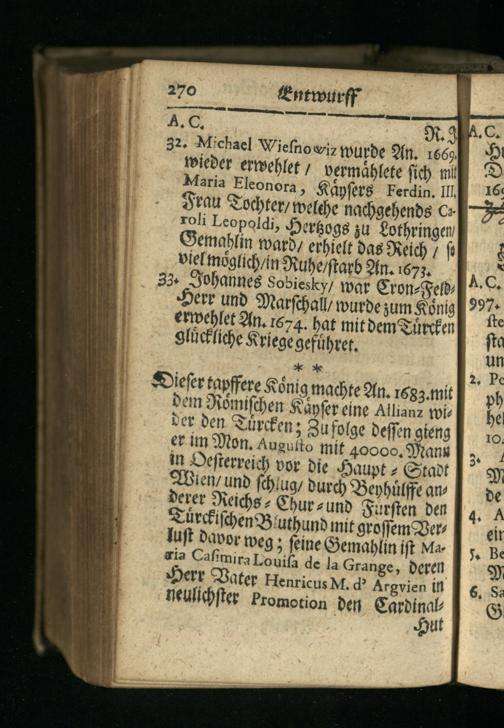 270 Entwurff
A. C. R. J
32. Michael Wiesnowiz wurde An. 1669.
wieder erwehlet / vermählete sich mit
Maria Eleonora, Käysers Ferdin. III.
Frau Tochter/ welche nachgehends Ca-
roli Leopoldi, Hertzogs zu Lothringen/
Gemahlin ward/ erhielt das Reich / so
viel möglich/in Ruhe/starb An. 1673.
33. Johannes Sobiesky/ war Cron-Feld-
Herr und Marschall/ wurde zum König
erwehlet An. 1674. hat mit dem Türcken
glückliche Kriege geführet.
* *
Dieser tapffere König machte An. 1683. mit
dem Römischen Käyser eine Allianz wi-
der den Türcken; Zufolge dessen gieng
er im Mon. Augusto mit 40000. Mann
in Oesterreich vor die Haupt-Stadt
Wien/ und schlug/ durch Beyhülffe an-
derer Reichs-Chur-und Fürsten den
Türckischen Bluthund mit grossem Ver-
lust davor weg; seine Gemahlin ist Ma-
ria Casimira Louisa de la Grange, deren
Herr Vater Henricus M. d' Arqvien in
neulichster Promotion den Cardinal-
Hut
A. C.
A. C.
997.
2.
3.
4.
5.
6.